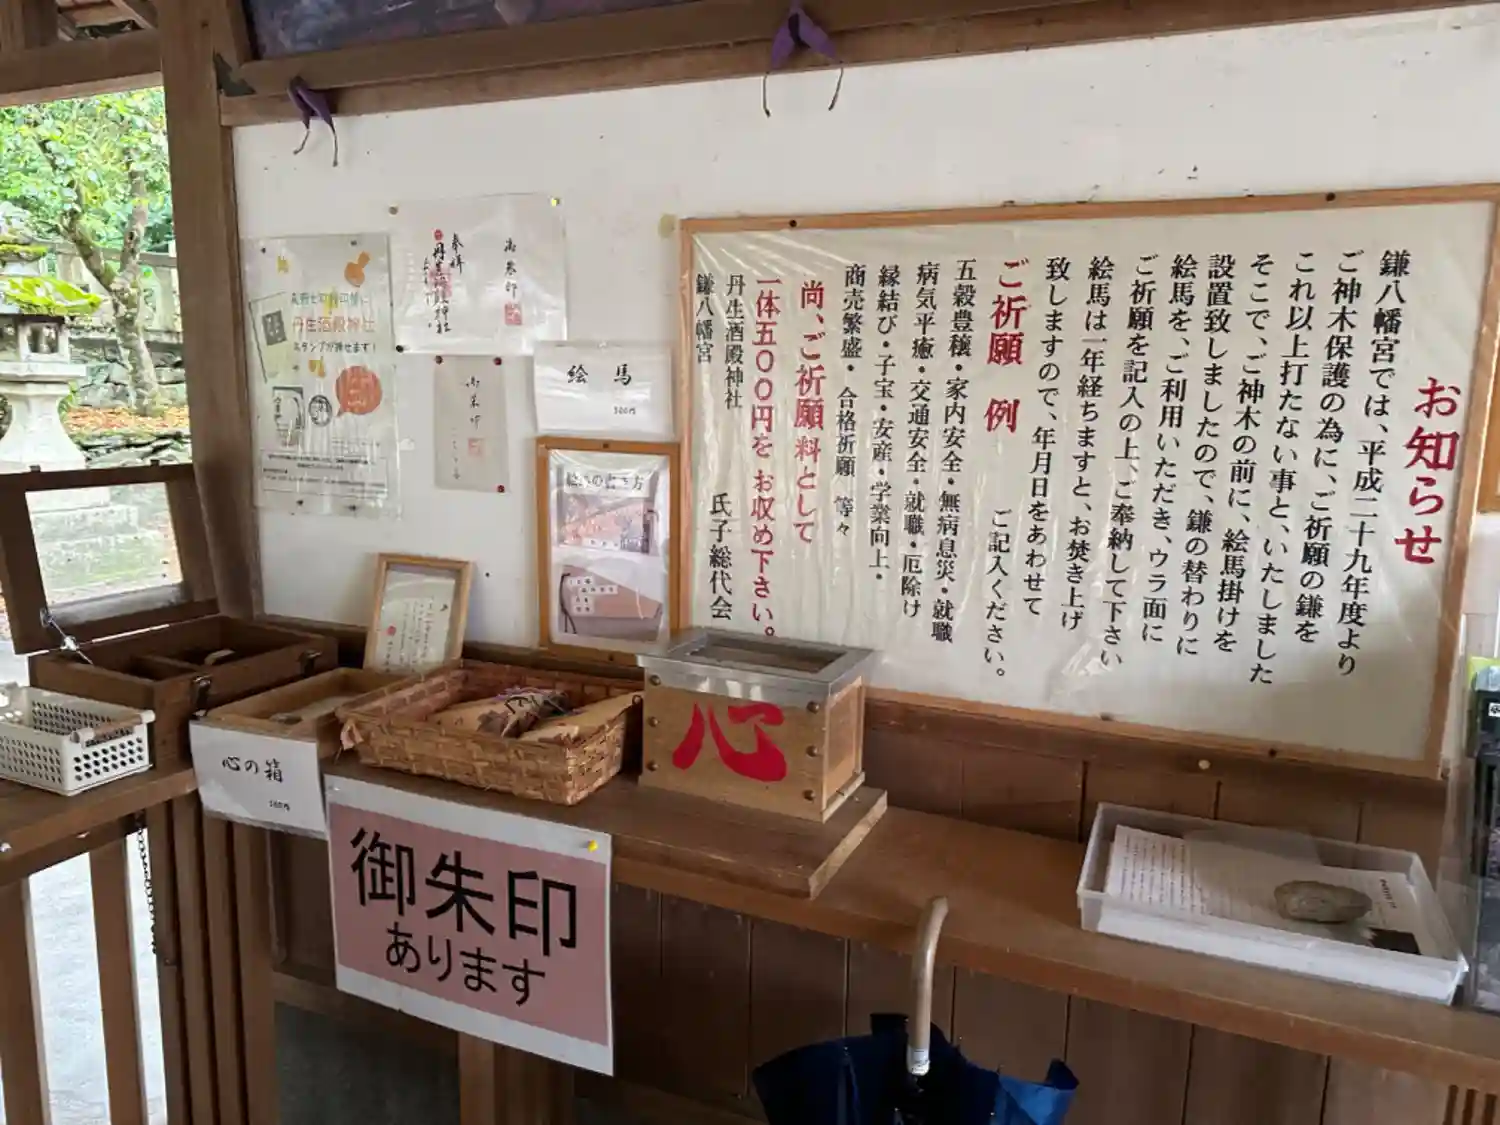 お知らせ
鎌八幡宮では、平成二十九年度より
ご神木保護の為に、ご祈願の鎌を
これ以上打たない事と、いたしました
そこで、ご神木の前に、絵馬掛けを
設置致しましたので、鎌の替わりに
絵馬を、ご利用いただき、ウラ面に
ご祈願を記入の上、ご奉納して下さい
絵馬は一年経ちますと、お焚き上げ
致しますので、年月日をあわせて
ご記入ください。
ご祈願 例
五穀豊穣・家内安全・無病息災・就職
病気平癒・交通安全・就職・厄除け
縁結び・子宝・安産・学業向上・
商売繁盛・合格祈願 等々
尚、ご祈願料として
一体五〇〇円を お収め下さい。
丹生酒殿神社
鎌八幡宮
氏子総代会
絵馬
500円
絵馬の書き方
御朱印
奉拝
丹生酒殿神社
スタンプが押せます!
御朱印
心の箱
500円
心
御朱印
あります